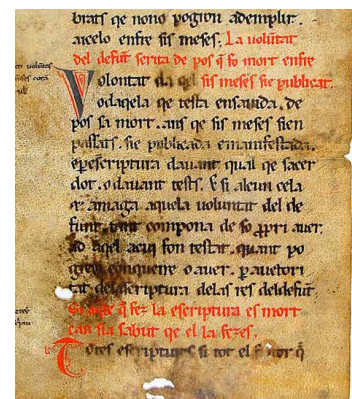 brats qe nono pogron ademplir.
aicelo enfre sis meses. La volũtat
del defũt serita de pos q̃ fo mort enfre
Volontat sis meses sie publicat.
odaqela qe testa ensavida. de
pos sa mort. ans qe sis meses sien
passats. sie publicada e manifestada.
e p escriptura davant qual qe sacer
dot. o davant tests. E si alcun cela
amaga aquela voluntat del de
funt. compona de so ppri aver.
ad aqel aqui fon testat. quant po
conquerre o aver. p auctori
tat del escriptura de las res del defut.
q̃ fez la escriptura es mort
can sia sabut qe el la fezes.
Totes escriptures si tot el q̃